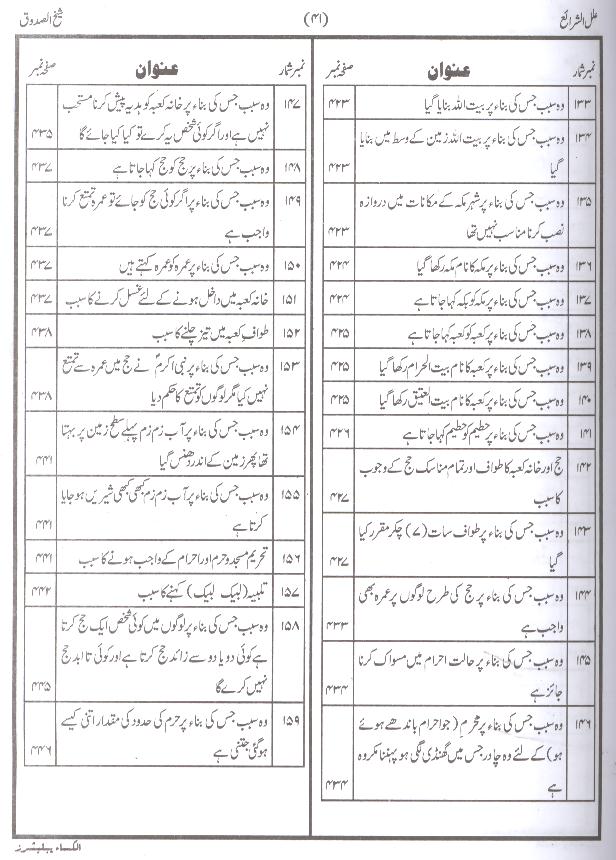 علل الشرائع
(۴۱)
شیخ الصدوق
نمبر شمار عنوان صفحہ نمبر
۱۳۳ وہ سبب جس کی بناء پر بیت اللہ بنایا گیا ۴۲۳
۱۳۴ وہ سبب جس کی بناء پر بیت اللہ زمین کے وسط میں بنایا
گیا ۴۲۳
۱۳۵ وہ سبب جس کی بناء پر شہر مکہ کے مکانات میں دروازہ
نصب کرنا مناسب نہیں تھا ۴۲۳
۱۳۶ وہ سبب جس کی بناء پر مکہ کا نام مکہ رکھا گیا ۴۲۴
۱۳۷ وہ سبب جس کی بناء پر مکہ کو بکہ کہا جاتا ہے ۴۲۴
۱۳۸ وہ سبب جس کی بناء پر کعبہ کو کعبہ کہا جاتا ہے ۴۲۵
۱۳۹ وہ سبب جس کی بناء پر کعبہ کا نام بیت الحرام رکھا گیا ۴۲۵
۱۴۰ وہ سبب جس کی بناء پر کعبہ کا نام بیت العتیق رکھا گیا ۴۲۵
۱۴۱ وہ سبب جس کی بناء پر حطیم کو حطیم کہا جاتا ہے ۴۲۶
۱۴۲ حج اور خانہ کعبہ کا طواف اور تمام مناسک حج کے وجوب
کا سبب ۴۲۷
۱۴۳ وہ سبب جس کی بناء پر طواف سات (۷) چکر مقرر کیا
گیا ۴۲۷
۱۴۴ وہ سبب جس کی بناء پر حج کی طرح لوگوں پر عمرہ بھی
واجب ہے ۴۳۳
۱۴۵ وہ سبب جس کی بناء پر حالت احرام میں مسواک کرنا
جائز ہے ۴۳۴
۱۴۶ وہ سبب جس کی بناء پر محرم (جو احرام باندھے ہوئے
ہو) کے لئے وہ چادر جس میں گھنڈی لگی ہو پہننا مکروہ
ہے ۴۳۴
نمبر شمار عنوان صفحہ نمبر
۱۴۷ وہ سبب جس کی بناء پر خانہ کعبہ کو ہدیہ پیش کرنا مستحب
نہیں ہے اور اگر کوئی شخص یہ کرے تو کیا کیا جائے گا ۴۳۵
۱۴۸ وہ سبب جس کی بناء پر حج کو حج کہا جاتا ہے ۴۳۷
۱۴۹ وہ سبب جس کی بناء پر اگر کوئی حج کو جائے تو عمرہ تمتع کرنا
واجب ہے ۴۳۷
۱۵۰ وہ سبب جس کی بناء پر عمرہ کو عمرہ کہتے ہیں ۴۳۷
۱۵۱ خانہ کعبہ میں داخل ہونے کے لئے غسل کرنے کا سبب ۴۳۷
۱۵۲ طواف کعبہ میں تیز چلنے کا سبب ۴۳۸
۱۵۳ وہ سبب جس کی بناء پر نبی اکرمؐ نے حج میں عمرہ سے تمتع
نہیں کیا مگر لوگوں کو تمتع کا حکم دیا ۴۳۸
۱۵۴ وہ سبب جس کی بناء پر آب زم زم پہلے سطح زمین پر بہتا
تھا پھر زمین کے اندر دھنس گیا ۴۴۱
۱۵۵ وہ سبب جس کی بناء پر آب زم زم کبھی کبھی شیریں ہو جایا
کرتا ہے ۴۴۱
۱۵۶ تحریم مسجد و حرم اور احرام کے واجب ہونے کا سبب ۴۴۱
۱۵۷ تلبیہ (لبیک لبیک) کہنے کا سبب ۴۴۲
۱۵۸ وہ سبب جس کی بناء پر لوگوں میں کوئی شخص ایک حج کرتا
ہے کوئی دو یا دو سے زائد حج کرتا ہے اور کوئی تا ابد حج
نہیں کرے گا ۴۴۵
۱۵۹ وہ سبب جس کی بناء پر حرم کی حدود کی مقدار اتنی کیسے
ہو گئی جتنی ہے ۴۴۶
الکساء پبلیشرز